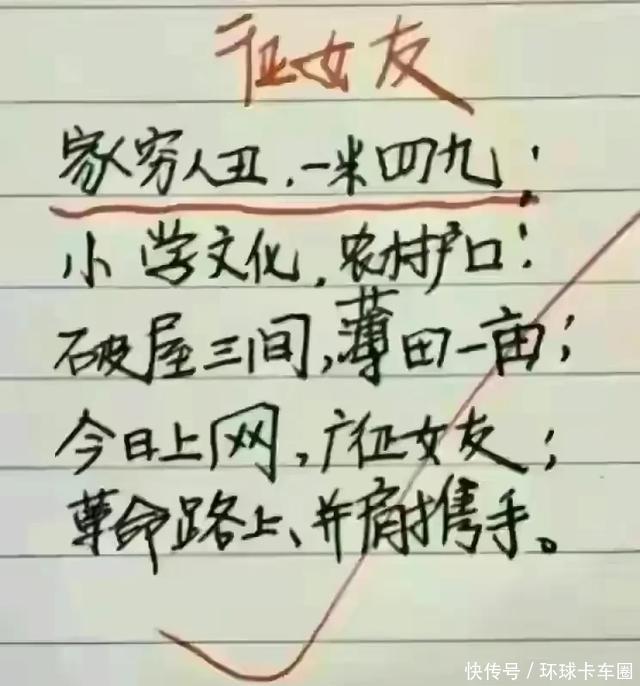 征女友
家穷人丑，一米四九；
小学文化，农村户口；
破屋三间，薄田一亩；
今日上网，广征女友；
革命路上、并肩携手。
快传号／环球卡车圈